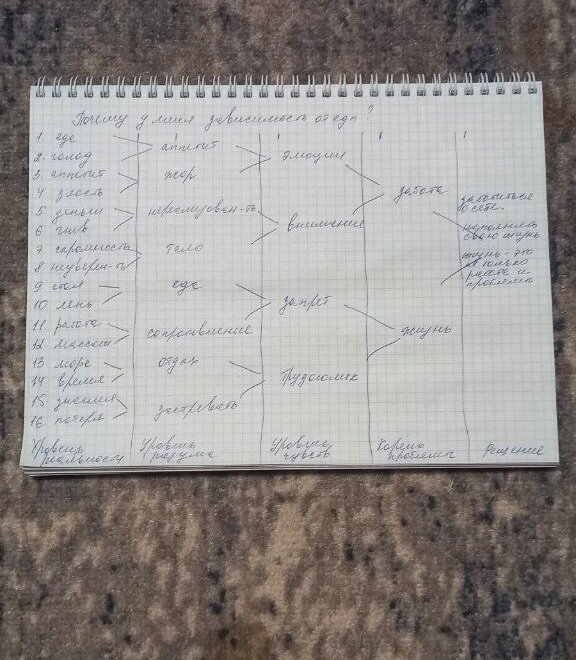 Почему у меня зависимость от еды?
1. еда
2. голод
3. аппетит
4. злость
5. деньги
6. гнев
7. скромность
8. неуверен-ть
9. стол
10. лень
11. работа
12. массаж
13. море
14. время
15. знания
16. потеря
Уровень
реальности
аппетит
жор
тело
еда
сопротивление
отдых
застревать
Уровень
разума
эмоции
внимание
запрет
трудоголик
Уровень
чувств
забота
жизнь
Корень
проблемы
заботиться
о себе.
наполнять
свою жизнь
жизнь - это
не только
работа и
проблемы
Решение